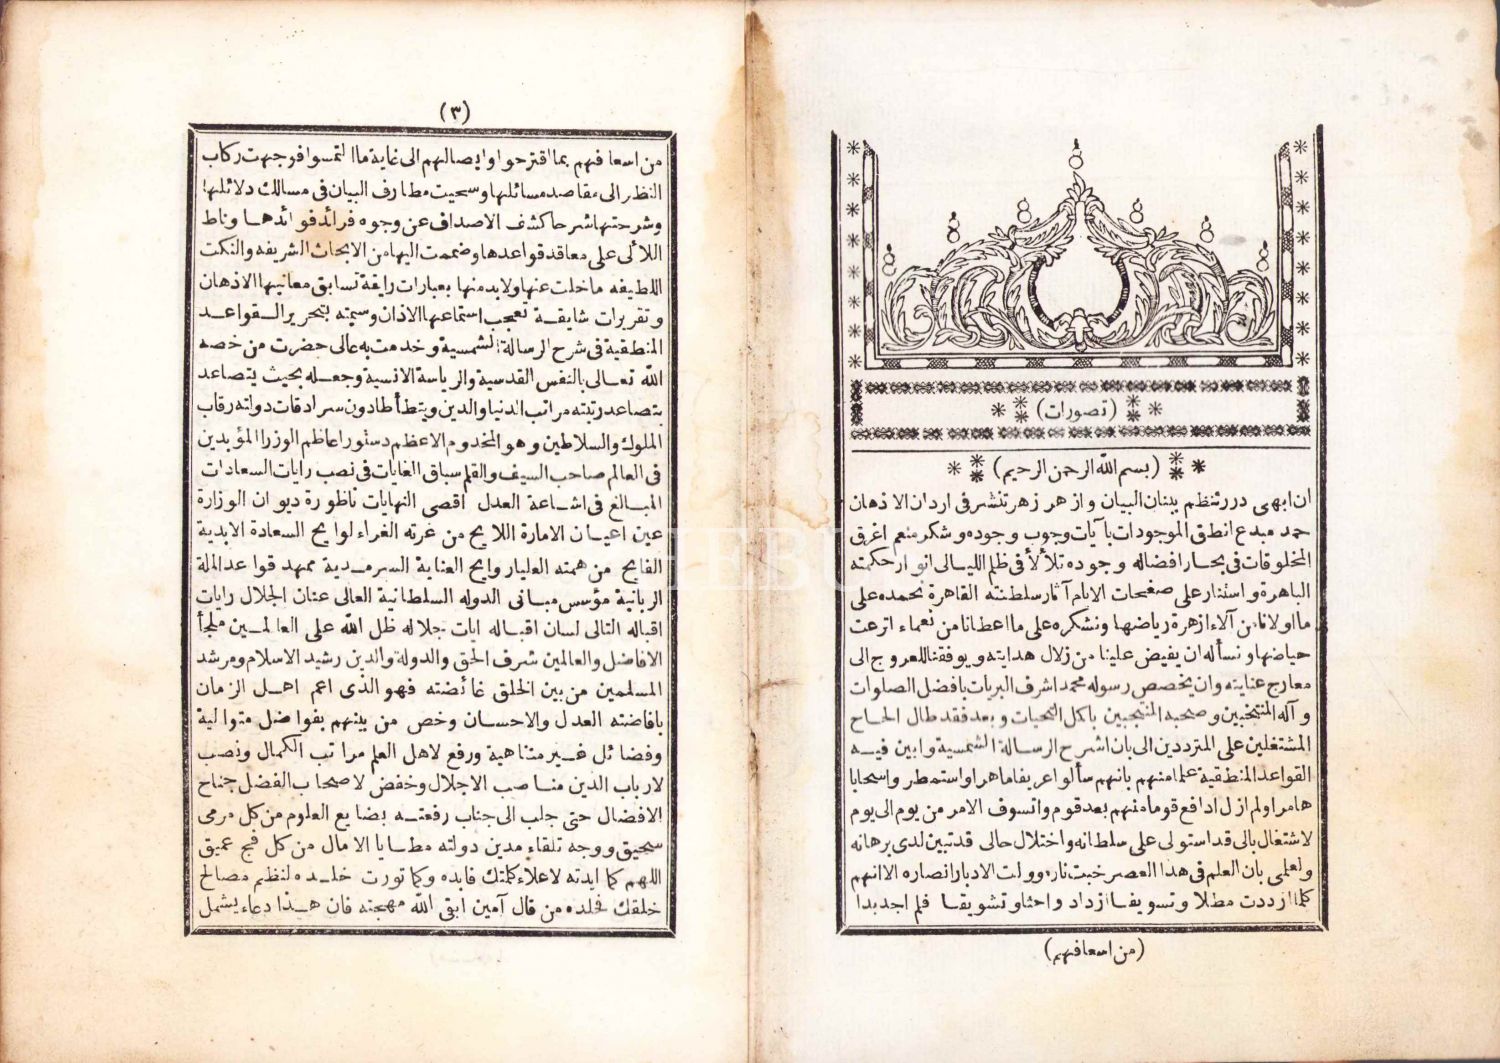 (تصورات)
(بسم الله الرحمن الرحيم)
ان ابهى درر تنظم ببنان البيان وازهر زهر تنشر فى اردان الاذهان
حمد مبدع انطق الموجودات بآيات وجوب وجوده وشكر منعم اغرق
المخلوقات فى بحار افضاله وجوده تلألأ فى ظلم الليالى انوار حكمته
الباهرة واستنار على صفحات الايام آثار سلطنته القاهرة نحمده على
ما اولانا من آلاء ازهرة رياضها ونشكره على ما اعطانا من نعماء اترعت
حياضها ونسأله ان يفيض علينا من زلال هدايته ويوفقنا للعروج الى
معارج عنايته وان يخصص رسوله محمد اشرف البريات بافضل الصلوات
وآله المنتخبين وصحبه المنتجبين باكمل التحيات وبعد فقد طال الحاح
المشتغلين على المترددين الى بان اشرح الرسالة الشمسية وابين فيه
القواعد المنطقية علما منهم بانهم سألوا عريفا ماهرا واستمطروا سحابا
هامرا ولم ازل ادافع قوما منهم بعد قوم واتسوف الامر من يوم الى يوم
لاشتغال بالى قد استولى على سلطانه واختلال حالى قد تبين لدى برهانه
ولعلمى بان العلم فى هذا العصر خبت ناره وولت الادبار انصاره الا انهم
كلما ازددت مطلا وتسويفا ازدادوا حثا وتشويقا فلم اجد بدا
(من اسعافهم)
(٣)
من اسعافهم بما اقترحوا وايصالهم الى غاية ما التمسوا فوجهت ركاب
النظر الى مقاصد مسائلها وسحبت مطارف البيان فى مسالك دلائلها
وشرحتها شرحا كشف الاصداف عن وجوه فرائد فوائدها وناط
اللآلى على معاقد قواعدها وضممت اليها من الابحاث الشريفه والنكت
اللطيفه ما خلت عنها ولابد منها بعبارات رايقة تسابق معانيها الاذهان
وتقريرات شايقة تعجب استماعها الاذان وسميته بتحرير القواعد
المنطقية فى شرح الرسالة الشمسية وخدمت به عالى حضرت من خصه
الله تعالى بالنفس القدسية والرياسة الانسية وجعله بحيث يتصاعد
بتصاعد رتبته مراتب الدنيا والدين ويتطأطأ دون سرادقات دولته رقاب
الملوك والسلاطين وهو المخدوم الاعظم دستور اعاظم الوزرا المؤبدين
فى العالم صاحب السيف والقلم سباق الغايات فى نصب رايات السعادات
المبالغ فى اشاعة العدل اقصى النهايات ناظورة ديوان الوزارة
عين اعيان الامارة اللايح من غرته الغراء لوايح السعادة الابدية
الفايح من همته العليا روايح العناية السرمدية ممهد قواعد الملة
الربانية مؤسس مبانى الدوله السلطانية العالى عنان الجلال رايات
اقباله التالى لسان اقباله ايات جلاله ظل الله على العالمين ملجأ
الافاضل والعالمين شرف الحق والدولة والدين رشيد الاسلام ومرشد
المسلمين من بين الخلق غائضته فهو الذى اعم اهل الزمان
بافاضته العدل والاحسان وخص من بينهم بفواضل متوالية
وفضائل غير متناهية ورفع لاهل العلم مراتب الكمال ونصب
لارباب الدين مناصب الاجلال وخفض لاصحاب الفضل جناح
الافضال حتى جلب الى جناب رفعته بضايع العلوم من كل مرمى
سحيق ووجه تلقاء مدين دولته مطايا الامال من كل فج عميق
اللهم كما ايدته لاعلاء كلمتك فابده وكما نورت خلده لنظم مصالح
خلقك فخلده من قال آمين ابقى الله مهجته فان هذا دعاء يشمل